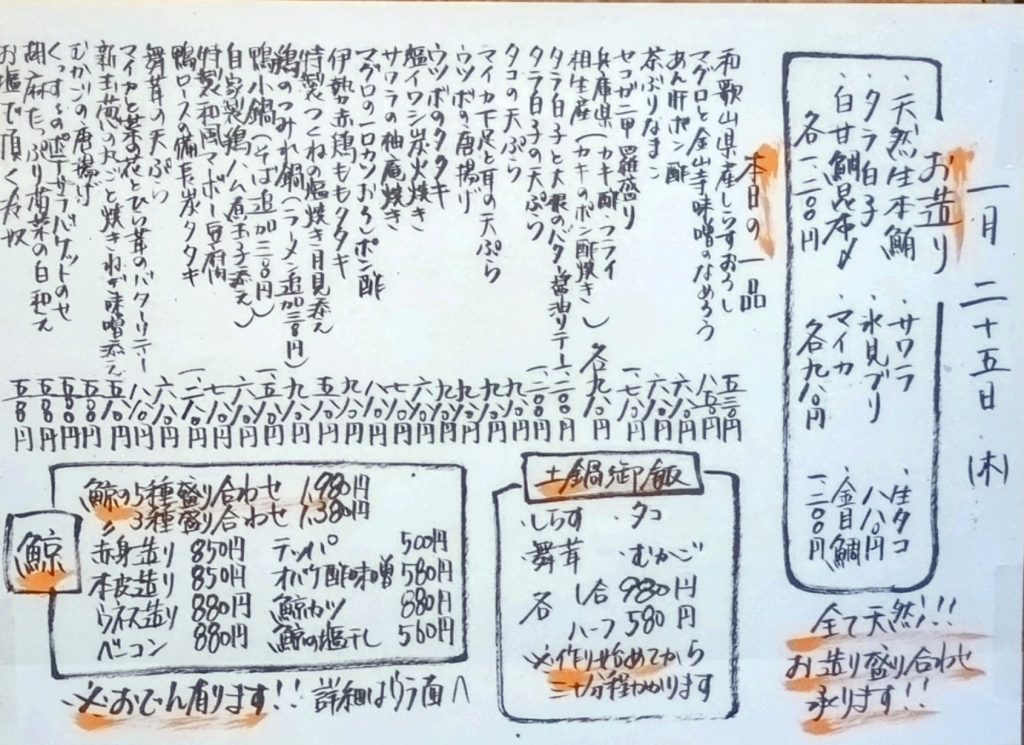 一月二十五日(木)
お造り
・天然生本鮪
・タラ白子
・白甘鯛昆布〆
各一、二〇〇円
・サワラ
・氷見ブリ
・マイカ
各九八〇円
・生タコ
八八〇円
・金目鯛
一、二〇〇円
全て天然!!
お造り盛り合わせ
承ります!
本日の一品
和歌山県産しらすおろし 五三〇円
マグロと金山寺味噌のなめろう 八五〇円
あん肝ポン酢 六八〇円
茶ぶりなまこ 六八〇円
セコガニ甲羅盛り 一、七八〇円
兵庫県(カキ酢・フライ
相生産(カキのポン酢焼き) 各九八〇円
タラ白子と大根のバター醤油ソテー 一、二〇〇円
タラ白子の天ぷら 一、二〇〇円
タコの天ぷら 九八〇円
マイカ下足と耳の天ぷら
ウツボの唐揚げ 九八〇円
ウツボのタタキ 九八〇円
塩イワシ炭火焼き 六八〇円
サワラの柚庵焼き 七八〇円
マグロの一口カツおろしポン酢 八八〇円
伊勢赤鶏ももタタキ 九八〇円
特製つくねの塩焼き月見添え 五八〇円
鶏のつみれ鍋(ラーメン追加三〇〇円) 九八〇円
鴨小鍋(そば追加三〇〇円) 一、五八〇円
自家製鶏ハム煮玉子添え
特製和風マーボー豆腐
鴨ロースの備長炭タタキ 一、二八〇円
舞茸の天ぷら 六八〇円
マイカと菜の花とひら茸のバターソテー 八八〇円
新玉葱の丸ごと焼きねぎ味噌添え 五八〇円
むかごの唐揚げ 五八〇円
くっす〜のポテーサラバゲットのせ
胡麻たっぷり菊菜の白和え 五八〇円
お塩で頂く冷奴 五八〇円
土鍋御飯
・しらす ・タコ
・舞茸 ・むかご
各 1合 980円
ハーフ 580円
※作り始めてから
三十分程かかります
鯨
鯨の5種盛り合わせ 1,980円
〃3種盛り合わせ 1,380円
赤身造り 850円
本皮造り 850円
ウネス造り 880円
ベーコン 880円
テッパ 500円
オバケ酢味噌 580円
鯨カツ 880円
鯨の塩干し 560円
※おでん有ります!! 詳細はウラ面へ